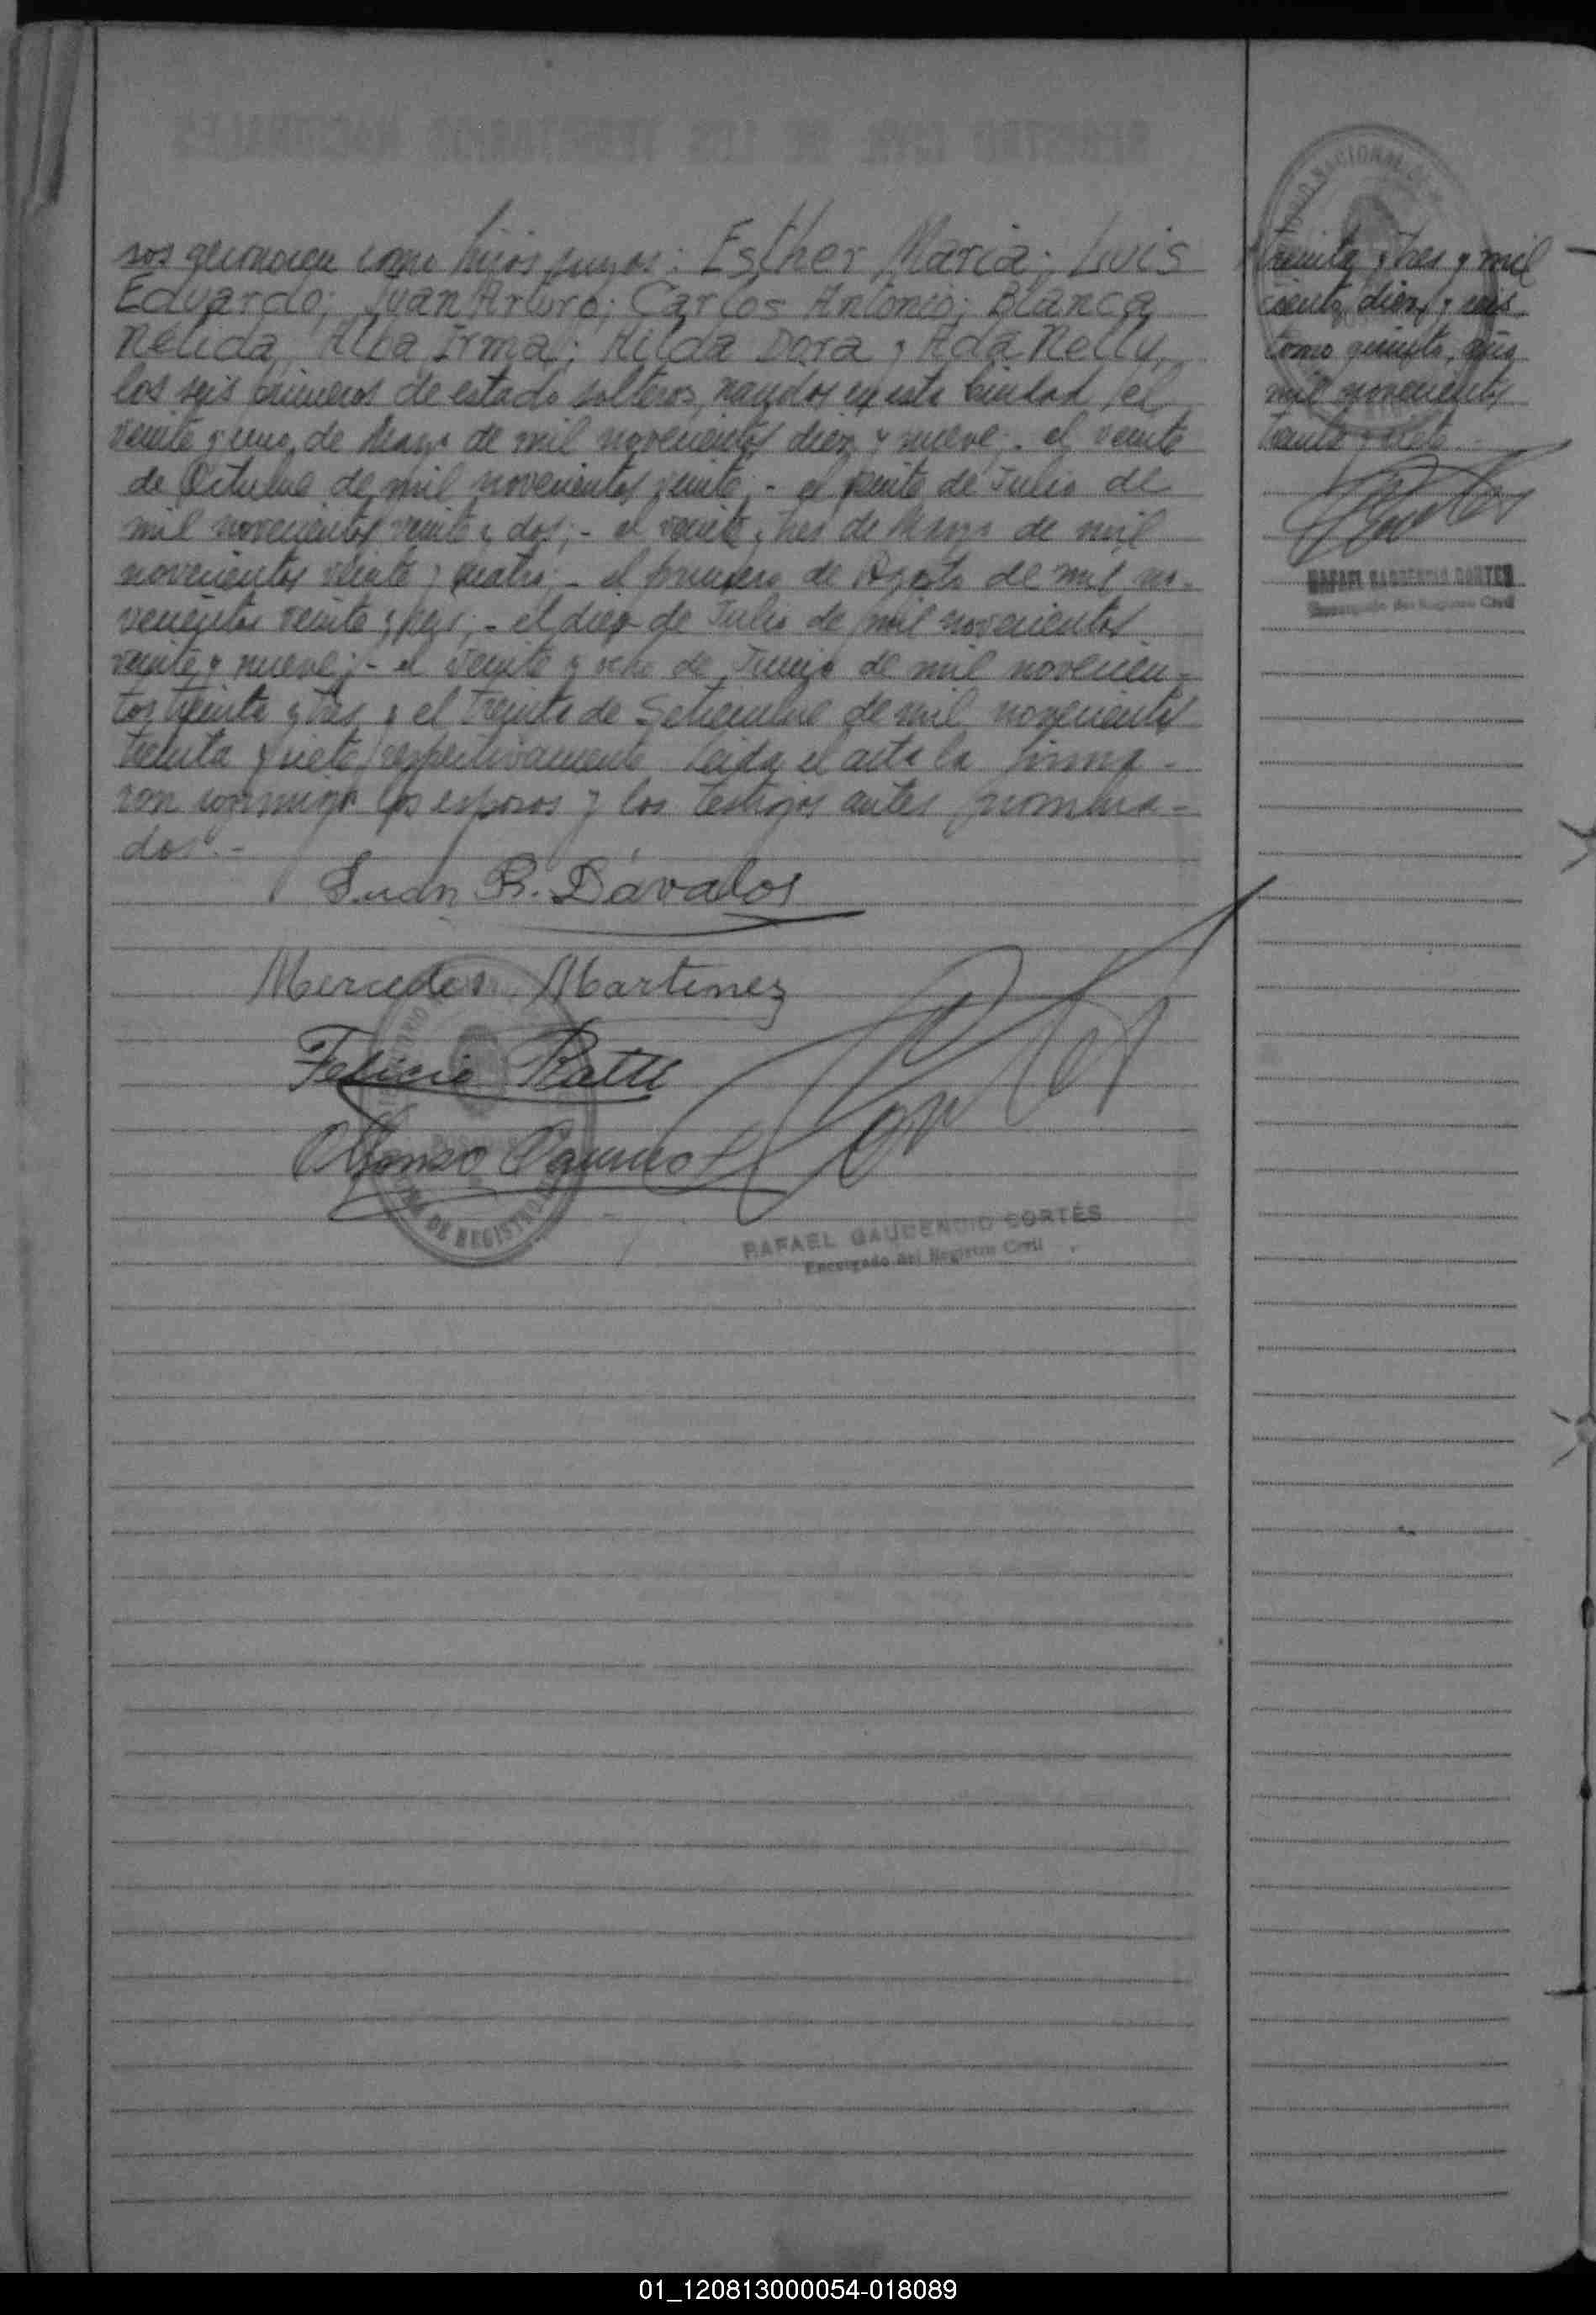 sos reconocen como hijos suyos: Esther Maria; Luis
Eduardo; Juan Arturo; Carlos Antonio; Blanca
Nélida, Alba Irma; Hilda Dora y Ada Nelly,
los seis primeros de estado solteros, nacidos en esta ciudad el
veinte y uno de de mil novecientos diez y nueve;- el veinte
de Octubre de mil novecientos veinte;- el veinte de Julio de
mil novecientos veinte y dos;- el veinte y tres de de mil
novecientos veinte y cuatro;- el primero de Agosto de mil no-
vecientos veinte y seis;- el diez de Julio de mil novecientos
veinte y nueve;- el veinte y ocho de Junio de mil novecien-
tos treinta y tres y el treinta de Setiembre de mil novecientos
treinta y siete respectivamente Leida el acta la firma-
ron conmigo los esposos y los testigos antes nombra-
dos.-
Juan B. Dávalos
Mercedes Martinez
Felicio Ratti
Alfonso
OFICINA DE REGISTRO
RAFAEL GAUDENCIO CORTÉS
Encargado del Registro Civil
treinta y tres y mil
ciento diez y seis
tomo quinto, año
mil novecientos
treinta y siete.-
RAFAEL GAUDENCIO CORTES
Encargado del Registro Civil
REGISTRO CIVIL DE LOS TERRITORIOS NACIONALES
01_120813000054-018089